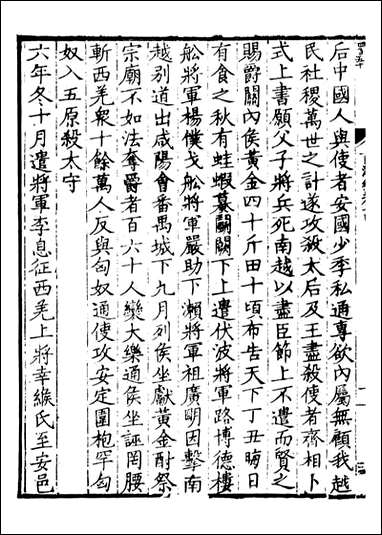 后中國人與使者安國少季私通專欲內屬無顧我越
民社稷萬世之計遂攻殺太后及王盡殺使者齊相卜
式上書願父子將兵死南越以盡臣節上不遣而賢之
賜爵關內侯黃金四十斤田十頃布告天下丁丑晦日
有食之秋有蛙蝦蟇鬭闕下上遣伏波將軍路博德樓
舡將軍楊僕戈舡將軍嚴助下瀨將軍祖廣明因擊南
越別道出咸陽會番禺城下九月列侯坐獻黃金酎祭
宗廟不如法奪爵者百六十人欒大樂通侯坐誣罔腰
斬西羌衆十餘萬人反與匈奴通使攻安定圍枹罕匈
奴入五原殺太守
六年冬十月遣將軍李息征西羌上將幸緱氏至安邑